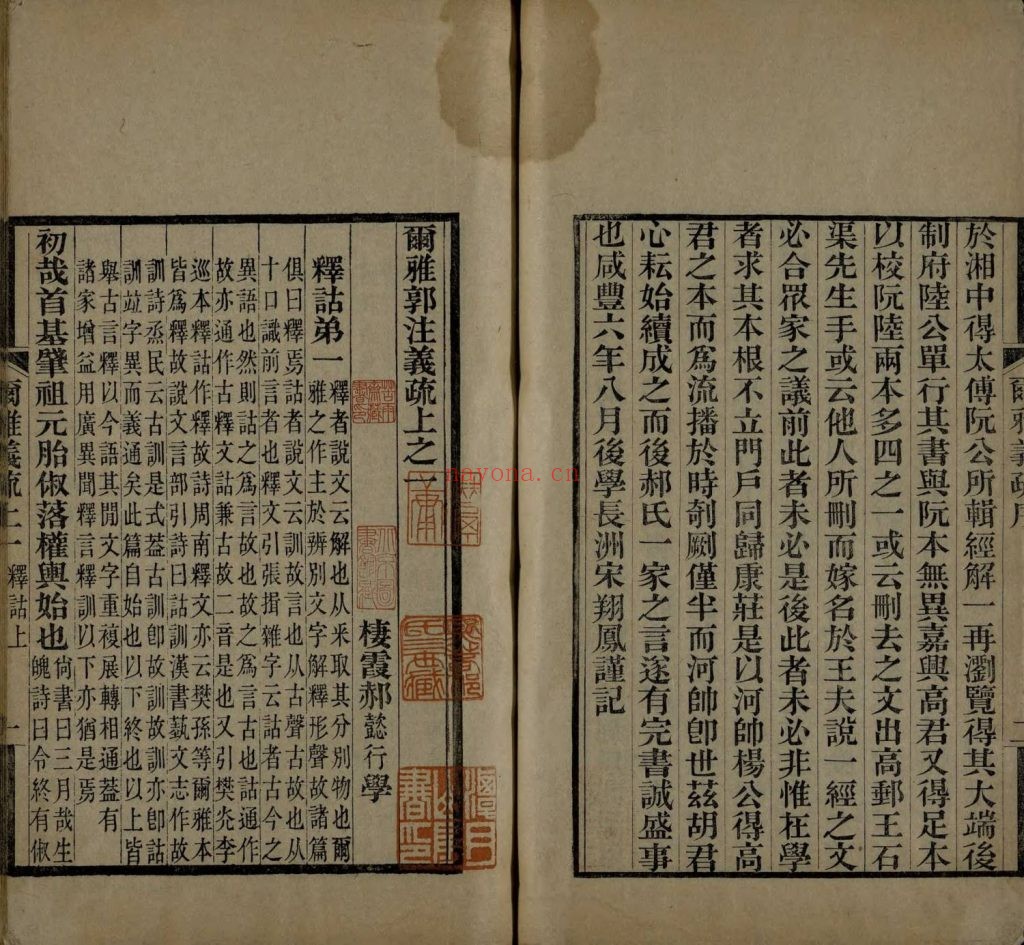 於湘中得太傅阮公所輯經解一再瀏覽得其大端後
制府陸公單行其書與阮本無異嘉興高君又得足本
以校阮陸兩本多四之一或云刪去之文出高郵王石
渠先生手或云他人所刪而嫁名於王夫說一經之文
必合眾家之議前此者未必是後此者未必非惟在學
者求其本根不立門戶同歸康莊是以河帥楊公得高
君之本而為流播於時剞劂僅半而河帥卽世茲胡君
心耘始續成之而後郝氏一家之言遂有完書誠盛事
也咸豐六年八月後學長洲宋翔鳳謹記
爾雅義疏序
爾雅郭注義疏上之一
棲霞郝懿行學
釋詁弟一
釋者說文云解也从釆取其分別物也爾
雅之作主於辨別文字解釋形聲故諸篇
俱曰釋焉詁者說文云訓故言也从古聲古故也从
十口識前言者也釋文引張揖雜字云詁者古今之
異語也然則詁之為言故也故之為言古也詁通作
故亦通作古釋文詁兼古故二音是也又引樊光李
巡本釋詁作釋故詩周南釋文亦云樊孫等爾雅本
皆為釋故說文言部引詩曰詁訓漢書蓺文志作故
訓詩烝民云古訓是式葢古訓卽故訓故訓亦卽詁
訓竝字異而義通矣此篇自始也以下終也以上皆
舉古言釋以今語其閒文字重複展轉相通葢有
諸家增益用廣異聞釋言釋訓以下亦猶是焉
初哉首基肇祖元胎俶落權輿始也
尙書曰三月哉生
魄詩曰令終有俶
爾雅義疏上一 釋詁上 一
nayona.cn